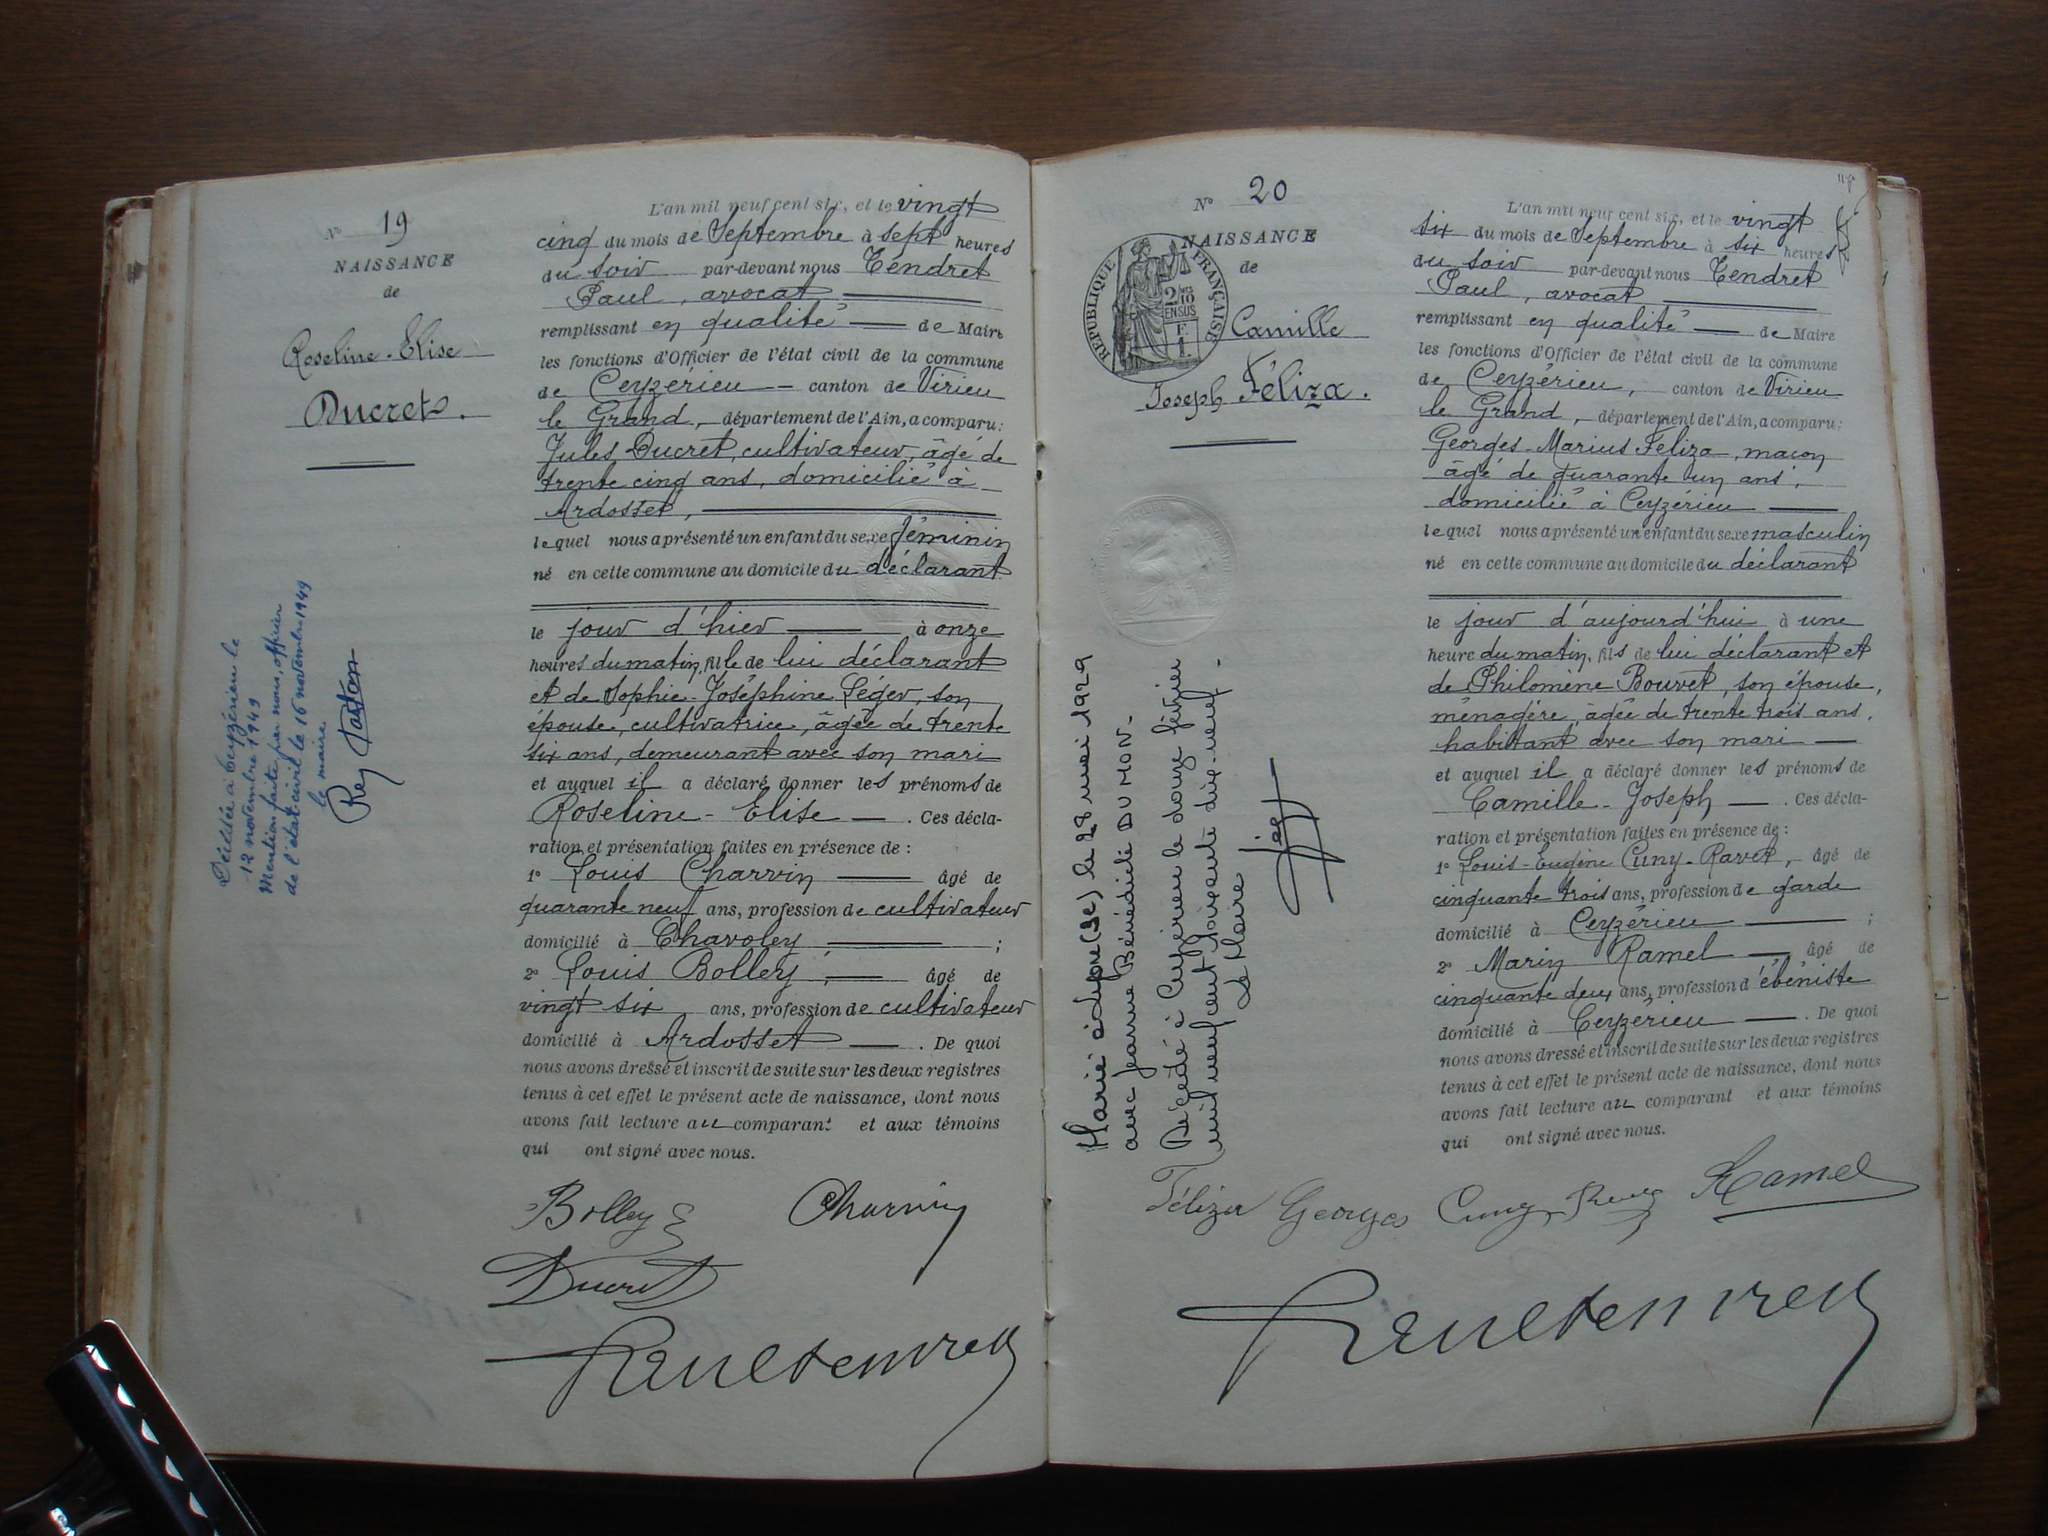 N° 19
NAISSANCE
de
Roseline-Elise
Ducret.
Décédée à Ceyzérieu le
12 novembre 1949
Mention faite par nous, officier
de l'état-civil le 16 novembre 1949
le maire
L'an mil neuf cent six, et le vingt
cinq du mois de Septembre à sept heures
du soir par-devant nous Tendret
Paul, avocat
remplissant en qualité de Maire
les fonctions d'Officier de l'état civil de la commune
de Ceyzérieu canton de Virieu
le Grand, département de l'Ain, a comparu:
Jules Ducret, cultivateur, âgé de
trente cinq ans, domicilié à
Ardosset,
lequel nous a présenté un enfant du sexe féminin
né en cette commune au domicile du déclarant
le jour d'hier à onze
heures du matin, fille de lui déclarant
et de Sophie-Joséphine Léger, son
épouse, cultivatrice, âgée de trente
six ans, demeurant avec son mari
et auquel il a déclaré donner les prénoms de
Roseline-Elise. Ces décla-
ration et présentation faites en présence de :
1° Louis Charvin âgé de
quarante neuf ans, profession de cultivateur
domicilié à Chavoley ;
2° Louis Bolley, âgé de
vingt six ans, profession de cultivateur
domicilié à Ardosset. De quoi
nous avons dressé et inscrit de suite sur les deux registres
tenus à cet effet le présent acte de naissance, dont nous
avons fait lecture au comparant et aux témoins
qui ont signé avec nous.
Bolley Charvin
Ducret
N° 20
NAISSANCE
de
RÉPUBLIQUE FRANÇAISE
2/10
EN SUS
Camille
Joseph Féliza.
Marié à Lyon (3e) le 28 mai 1929
avec Jeanne Bénédicte DUMON-
Décédé à Ceyzérieu le douze février
mil neuf cent soixante dix-neuf.
Le Maire
L'an mil neuf cent six, et le vingt
six du mois de Septembre à six heures
du soir par-devant nous Tendret
Paul, avocat
remplissant en qualité de Maire
les fonctions d'Officier de l'état civil de la commune
de Ceyzérieu, canton de Virieu
le Grand, département de l'Ain, a comparu:
Georges-Marius Féliza, maçon
âgé de quarante un ans,
domicilié à Ceyzérieu
lequel nous a présenté un enfant du sexe masculin
né en cette commune au domicile du déclarant
le jour d'aujourd'hui à une
heure du matin, fils de lui déclarant et
de Philomène Bouvet, son épouse,
ménagère, âgée de trente trois ans,
habitant avec son mari
et auquel il a déclaré donner les prénoms de
Camille-Joseph. Ces décla-
ration et présentation faites en présence de :
1° Louis-Eugène Cuny-Ravet, âgé de
cinquante trois ans, profession de garde
domicilié à Ceyzérieu ;
2° Marin Ramel âgé de
cinquante deux ans, profession d'ébéniste
domicilié à Ceyzérieu. De quoi
nous avons dressé et inscrit de suite sur les deux registres
tenus à cet effet le présent acte de naissance, dont nous
avons fait lecture au comparant et aux témoins
qui ont signé avec nous.
Féliza Georges Cuny-Ravet Ramel